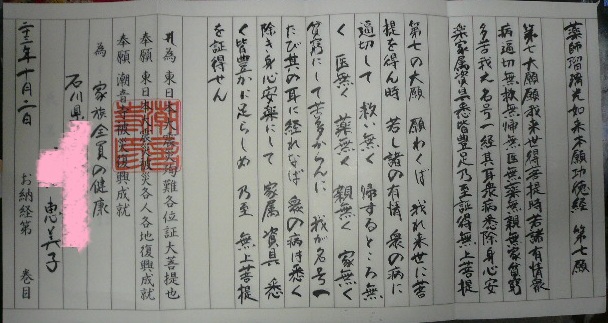 薬師瑠璃光如来本願功徳経 第七願
第七大願願我来世得菩提時若諸有情衆
病逼切無救無帰無医無薬無親無家貧窮
多苦我之名号一経其耳衆病悉除身心安
楽家属資具悉皆豊足乃至証得無上菩提
第七の大願 願わくば 我れ来世に菩
提を得ん時 若し諸の有情 衆の病に
逼切して 救い無く 帰するところ無
く 医無く 薬無く 親無く 家無く
貧窮にして苦多からんに 我が名号一
たび其の耳に経れなば 衆の病は悉く
除き身心安楽にして 家属資具 悉
く皆豊かに足らしめ 乃至 無上菩提
を証得せん
為 東日本大震災殉難各位証大菩提也
奉願 東日本大震災被災各人各地復興成就
奉願 潮音寺被災復興成就
為 家族全員の健康
石川県 恵美子
二十三年十月二日 お納経第 巻目